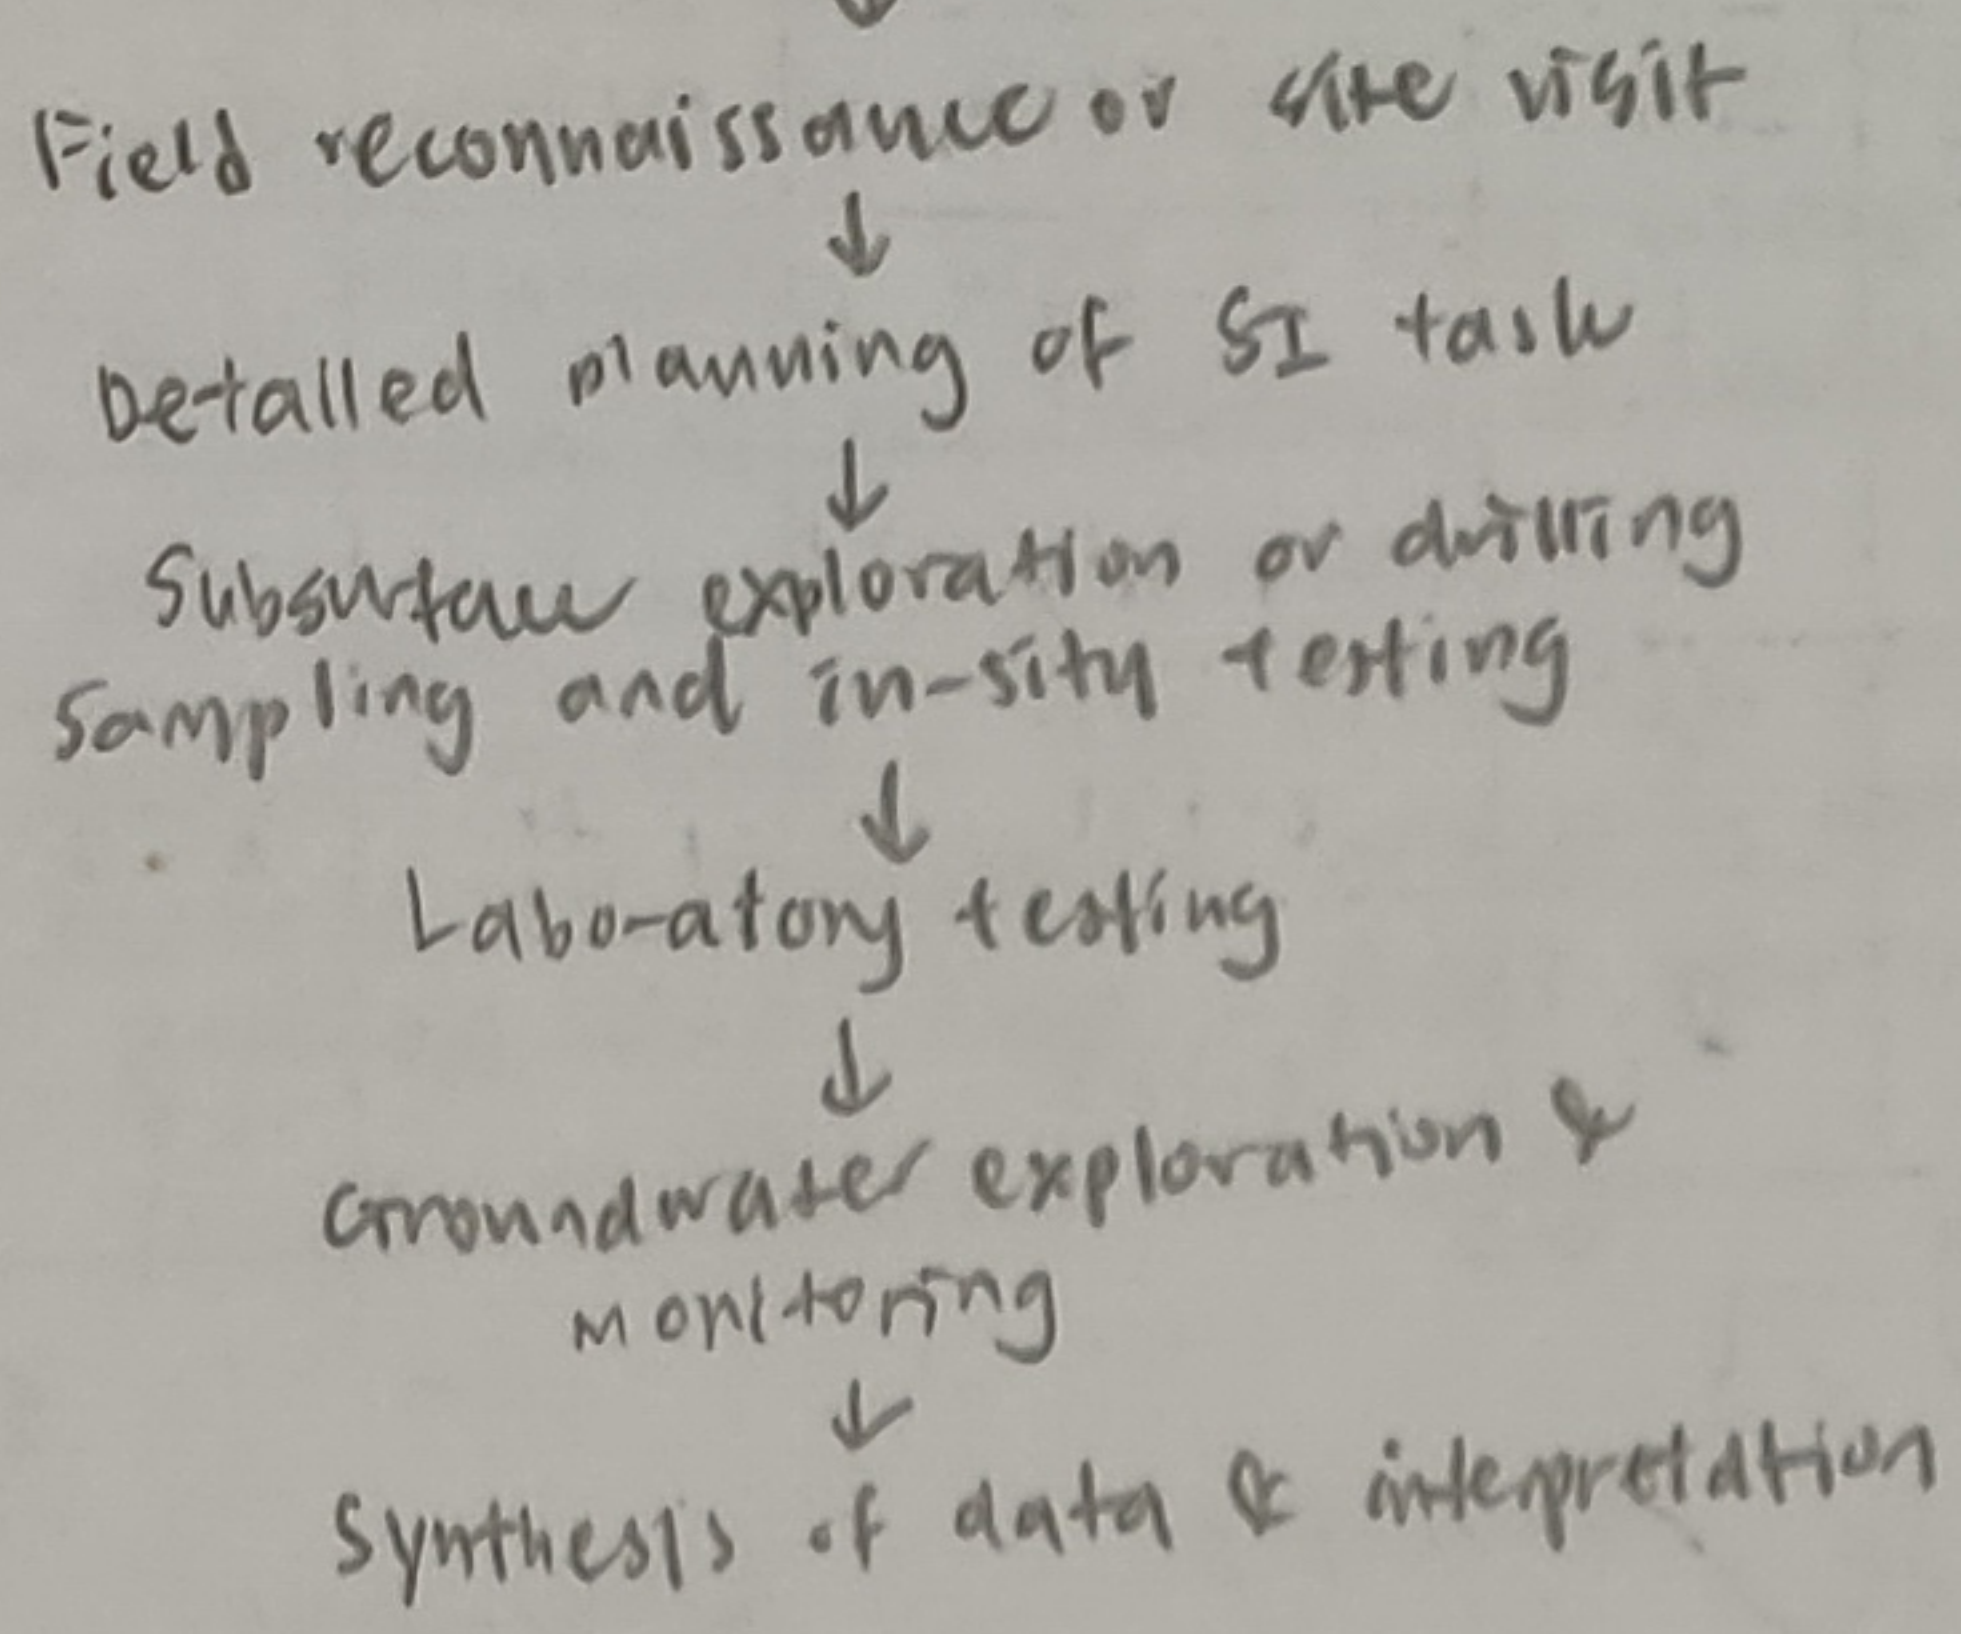 ↓
Field reconnaissance or site visit
↓
Detailed planning of SI task
↓
Subsurface exploration or drilling
Sampling and in-situ testing
↓
Laboratory testing
↓
Groundwater exploration &
monitoring
↓
Synthesis of data & interpretation